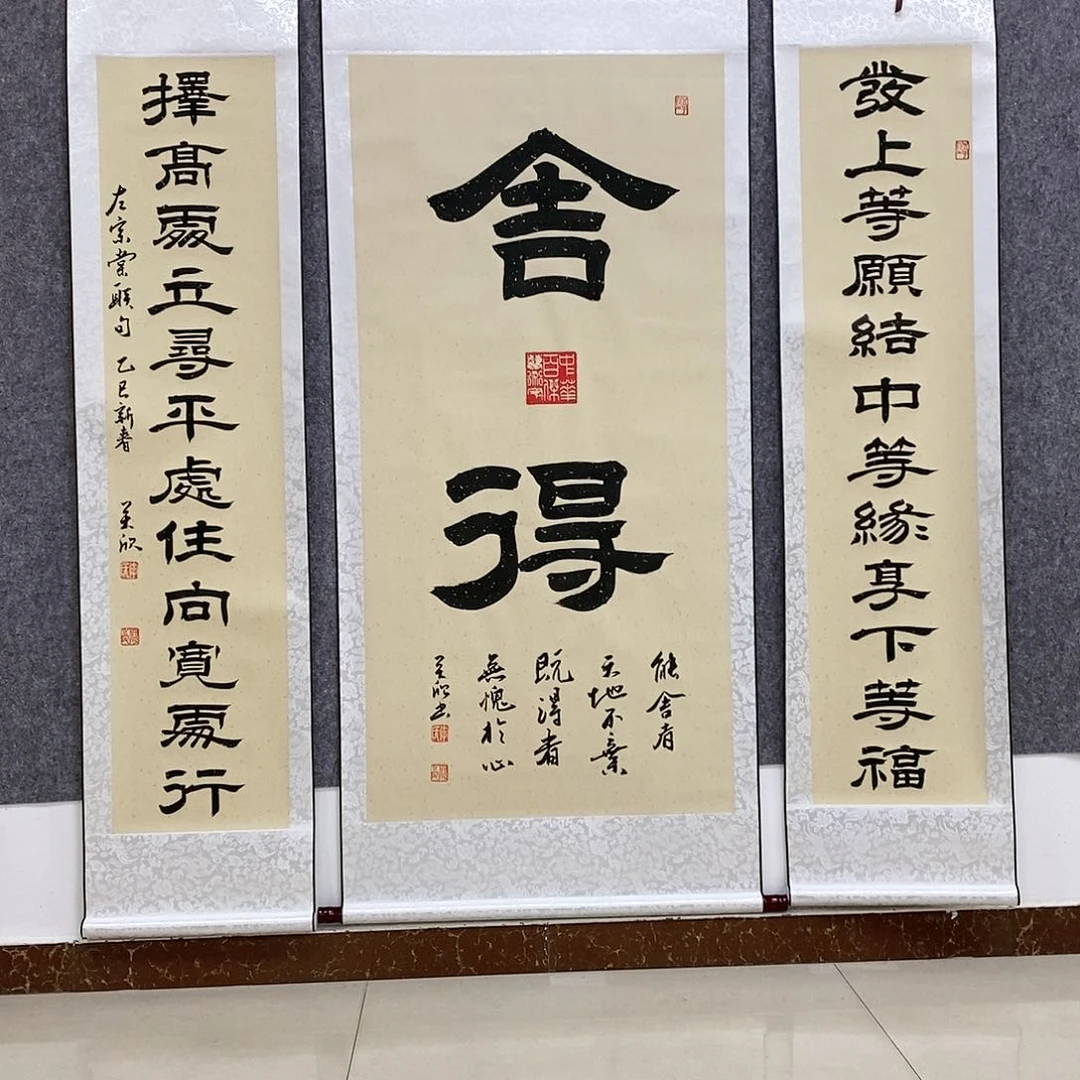 發上等願結中等緣享下等福
舍得
能舍者
天地不棄
既得者
無愧於心
美欣书
中華
百傑
擇高處立尋平處住向寬處行
左宗棠聯句 乙巳新春
美欣